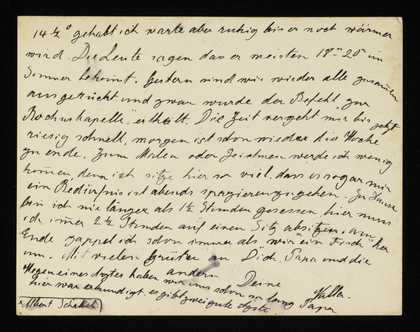 14½° gehabt ich warte aber ruhig bis es noch wärmer
wird. Die Leute sagen das er meisten 18°-20° im
Sommer bekomt. Gestern sind wir wieder alle zusamen
ausgerückt und zwar wurde der Befehl, zur
Rochuskapelle, erteilt. Die Zeit vergeht mir bis jetzt
riesig schnell, morgen ist schon wieder die Woche
zu ende. Zum Malen oder Zeichnen werde ich wenig
komen, denn ich sitze hier so viel, dass es sogar mir
ein Bedürfnis ist abends spazieren zu gehen. Zu Hause
bin ich nie länger als 1½ Stunden gesessen hier muss
ich imer 2½ Stunden auf einen Sitz absitzen, am
Ende zappel ich schon immer als wie ein Fisch
um. Mit vielen Grüßen an Dich Papa und die
andern Deine
Wegen eines Arztes haben wir uns schon so lang
hier war erkundigt es gibt zwei gute Ärzte Papa
Albert